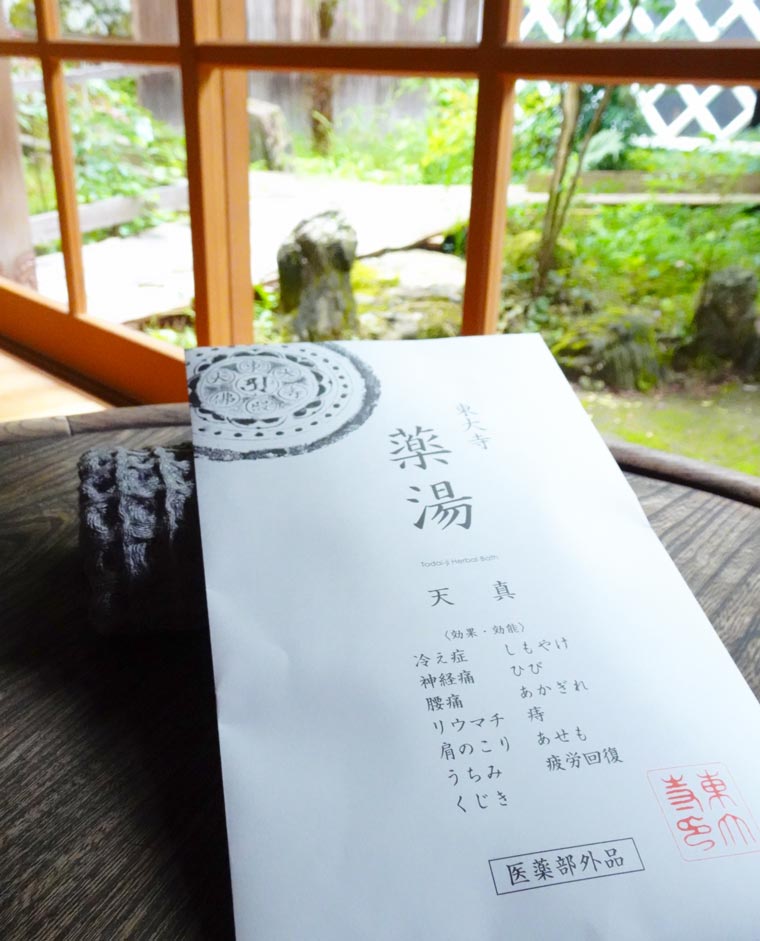 東大寺
薬湯
Todai-ji Herbal Bath
天真
〈効果・効能〉
冷え症 しもやけ
神経痛 ひび
腰痛 あかぎれ
リウマチ 痔
肩のこり あせも
うちみ 疲労回復
くじき
医薬部外品
東大寺印